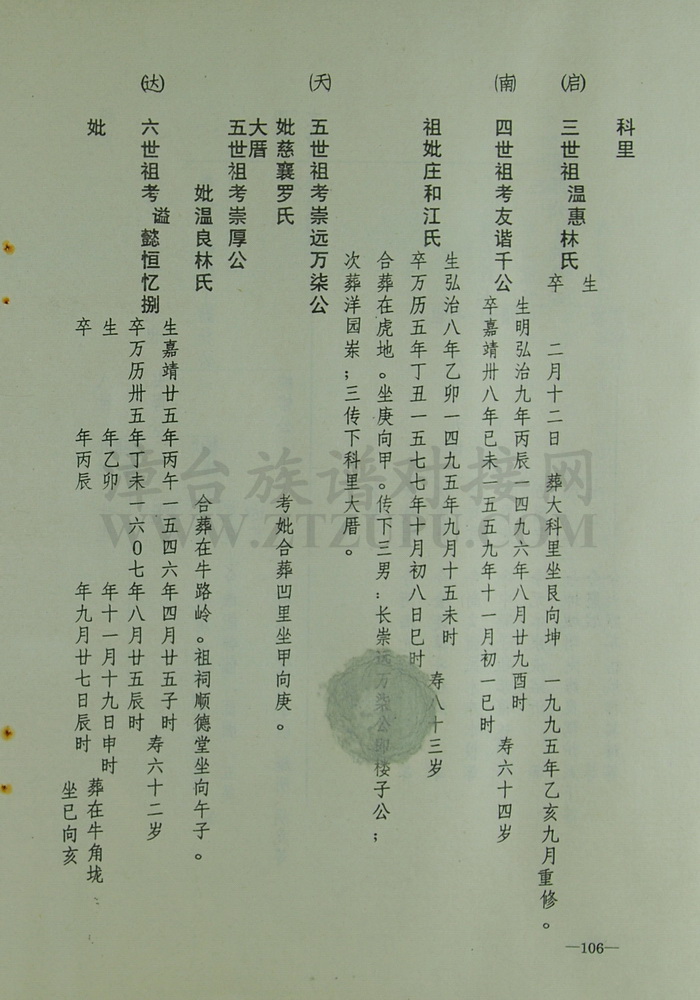 科里
(启) 三世祖温惠林氏
生
卒 二月十二日 葬大科里坐艮向坤 一九九五年乙亥九月重修。
(南) 四世祖考友谐千公
生明弘治九年丙辰一四九六年八月廿九酉时
卒嘉靖卅八年已未一五五九年十一月初一已时 寿六十四岁
祖妣庄和江氏
生弘治八年乙卯一四九五年九月十五未时
卒万历五年丁丑一五七七年十月初八日巳时 寿八十三岁
合葬在虎地。坐庚向甲。传下三男:长崇远万柒公卵楼子公;
次葬洋园岽;三传下科里大厝。
(天) 五世祖考崇远万柒公
妣慈襄罗氏 考妣合葬凹里坐甲向庚。
大厝
五世祖考崇厚公
妣温良林氏 合葬在牛路岭。祖祠顺德堂坐向午子。
(达) 六世祖考 谥懿恒忆捌
生嘉靖廿五年丙午一五四六年四月廿五子时
卒万历卅五年丁未一六0七年八月廿五辰时 寿六十二岁
妣
生 年乙卯 年十一月十九日申时
卒 年丙辰 年九月廿七日辰时
葬在牛角垅
坐巳向亥
—106—
漳台族谱对接网
WWW.ZTZUPU.COM